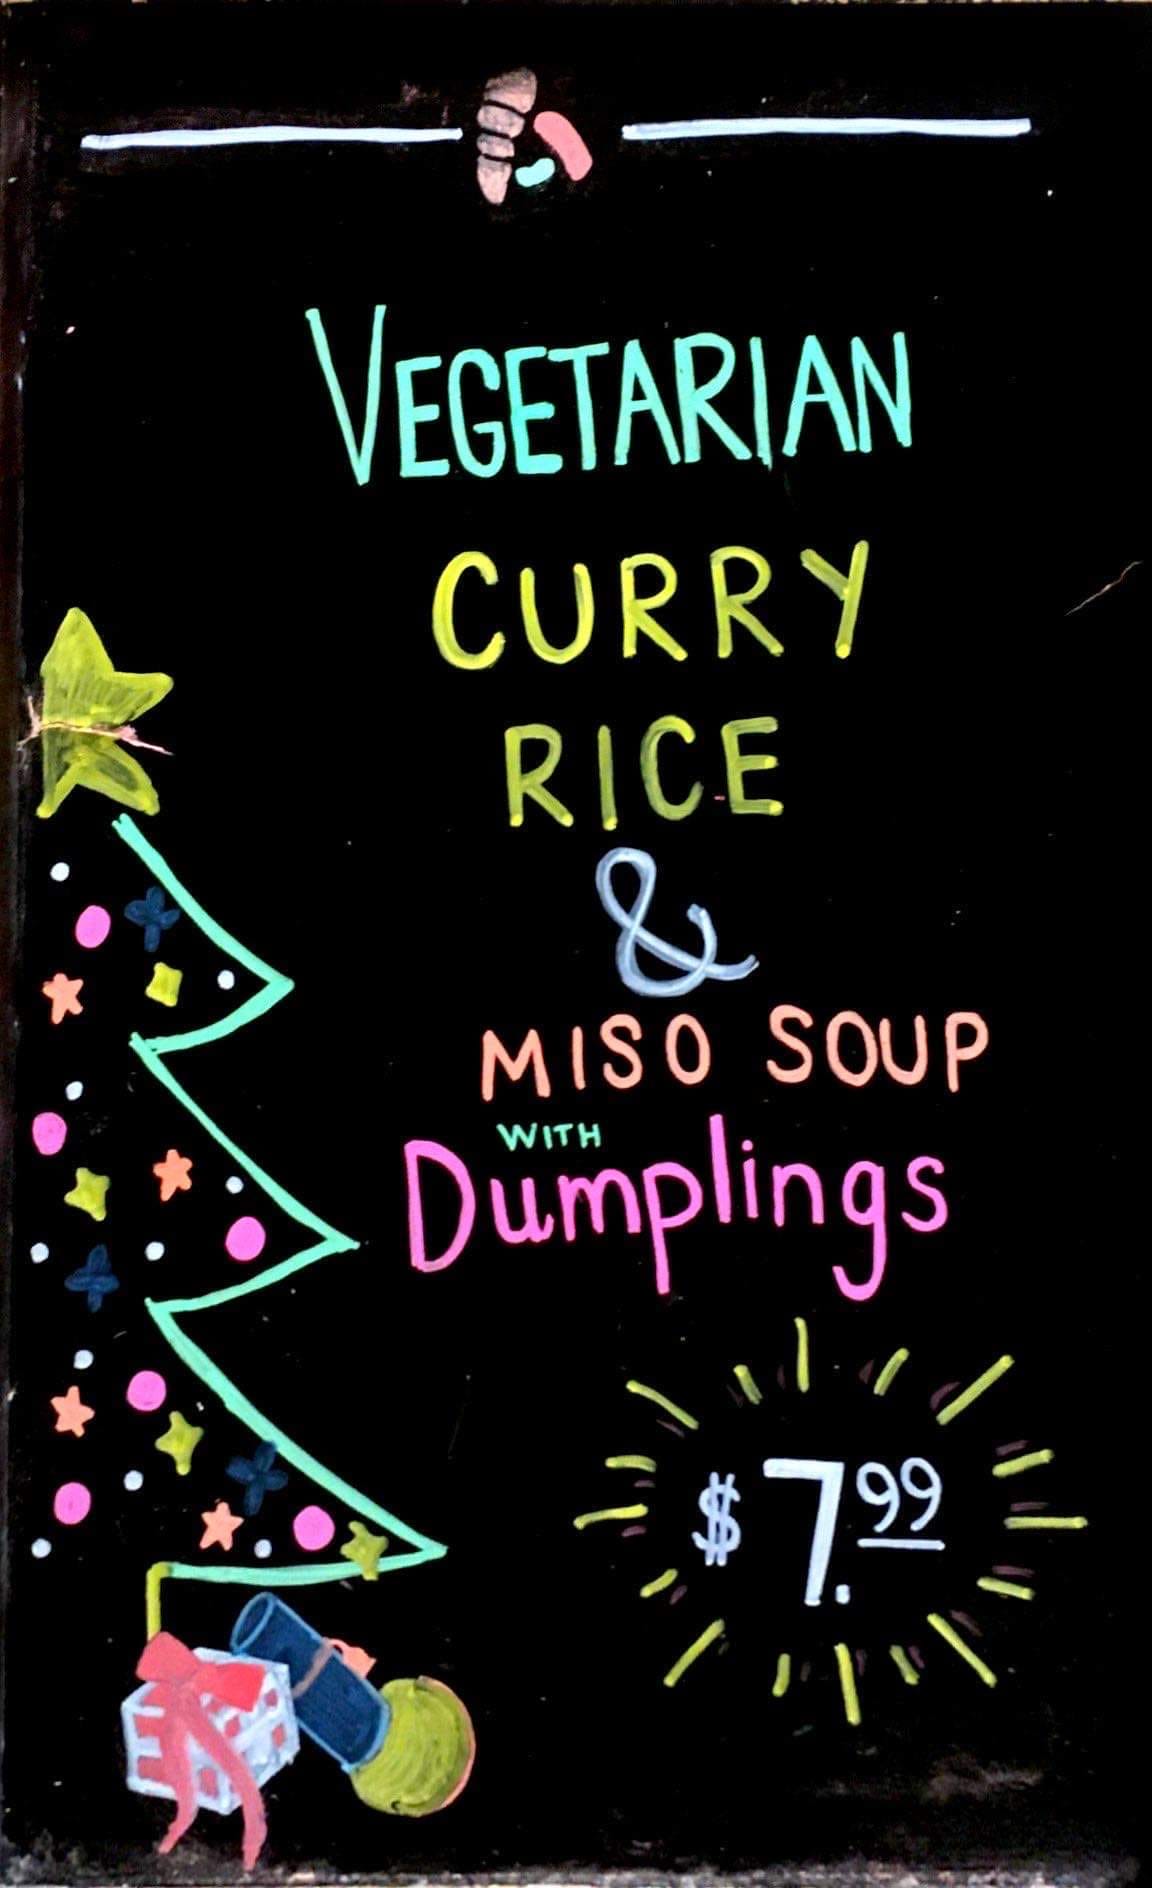 VEGETARIAN
CURRY
RICE
&
MISO SOUP
WITH
Dumplings
$7.99